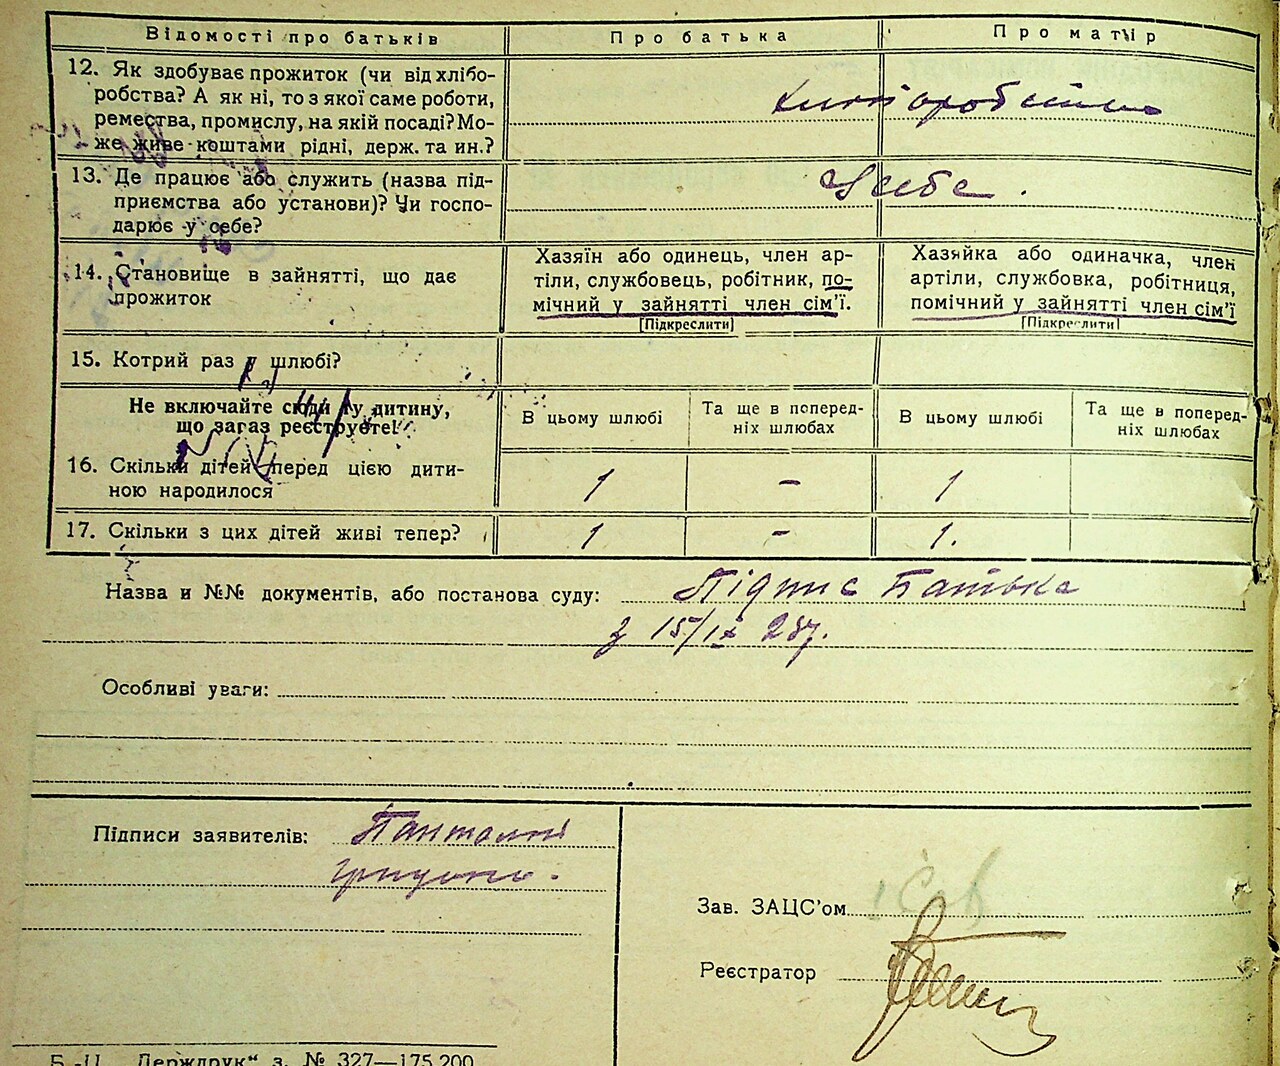 Відомості про батьків
Про батька
Про матір
12. Як здобуває прожиток (чи від хлібо-
робства? А як ні, то з якої саме роботи,
ремества, промислу, на якій посаді? Мо-
же живе коштами рідні, держ. та ин.?
13. Де працює або служить (назва під-
приємства або установи)? Чи госпо-
дарює у себе?
У себе.
14. Становище в зайнятті, що дає
прожиток
Хазяїн або одинець, член ар-
тіли, службовець, робітник, по-
мічний у зайнятті член сім'ї.
[Підкреслити]
Хазяйка або одиначка, член
артіли, службовка, робітниця,
помічний у зайнятті член сім'ї
[Підкреслити]
15. Котрий раз у шлюбі?
Не включайте сюди ту дитину,
що загаз реєструєте!
В цьому шлюбі
Та ще в поперед-
ніх шлюбах
В цьому шлюбі
Та ще в поперед-
ніх шлюбах
16. Скільки дітей перед цією дити-
ною народилося
1 - 1
17. Скільки з цих дітей живі тепер?
1 - 1.
Назва и №№ документів, або постанова суду: Підпис Батька
з 15/IX 28р.
Особливі уваги:
Підписи заявителів:
Зав. ЗАЦС'ом
Реєстратор
Б.-Ц. „Держдрук" з. № 327—175.200